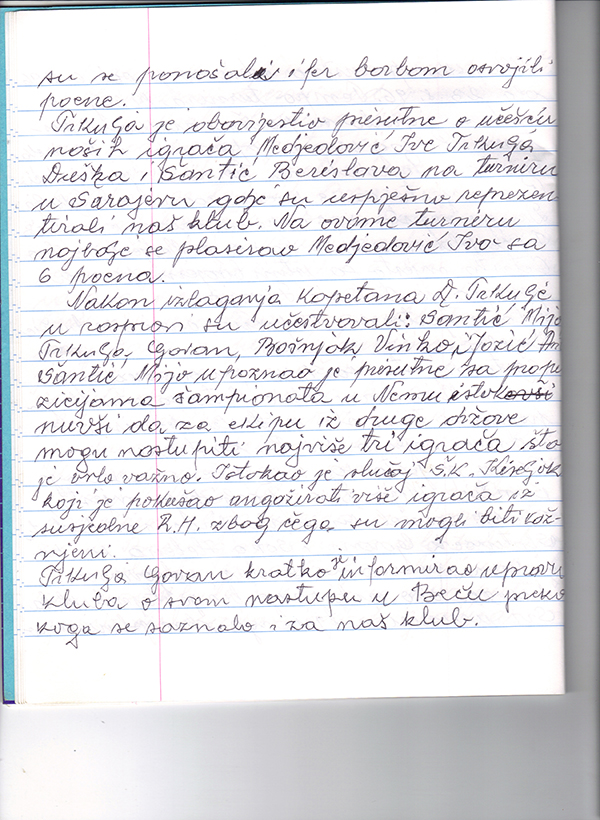 su se ponošali i fer borbom osvojili
poene.
Trkulja je obavijestio prisutne o učešću
naših igrača Medjedović Ive Trkulja
Duška i Šantić Berislava na turniru
u Sarajevu gdje su uspješno reprezen
tirali naš klub. Na ovome turniru
najbolje se plasirao Medjedović Ivo sa
6 poena.
Nakon izlaganja kapetana D. Trkulje
u raspravi su učestvovali: Šantić Mijo
Trkulja Goran, Bošnjak Vinko i Jozić
Šantić Mijo upoznao je prisutne sa propo
zicijama šampionata u Neumu istak
nuvši da za ekipu iz druge države
mogu nastupiti najviše tri igrača što
je vrlo važno. Istakao je slučaj Š.K. Kiseljak
koji je pokušao angožirati više igrača iz
susjedne R.H. zbog čega su mogli biti kaž-
njeni.
Trkulja Goran kratko je informirao upravu
kluba o svom nastupu u Beču preko
koga se saznalo i za naš klub.